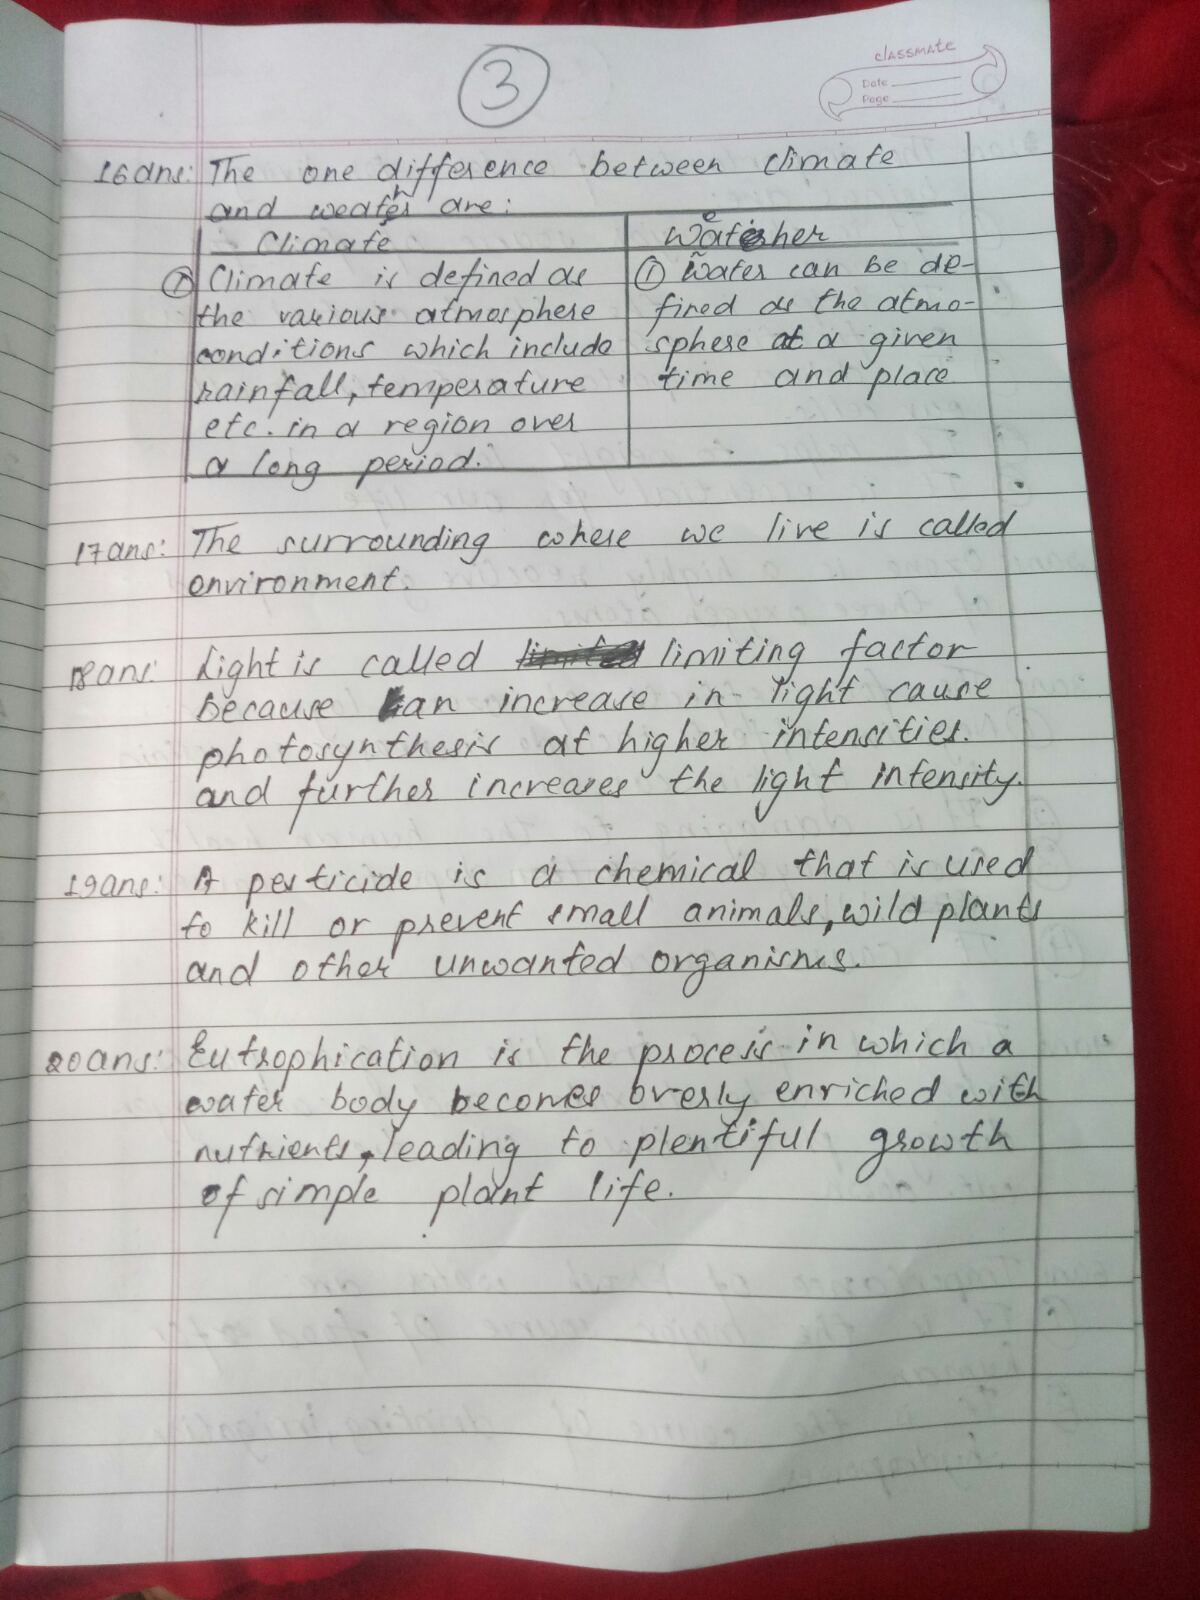 3
classmate
Date
Page
16ans: The one difference between climate
and weather are:
Climate
Weather
① Climate is defined as
the various atmosphere
conditions which include
rainfall, temperature
etc. in a region over
a long period.
① Water can be de-
fined as the atmo-
sphere at a given
time and place
17ans: The surrounding where we live is called
environment.
18ans: Light is called limiting factor
because an increase in light cause
photosynthesis at higher intensities.
and further increases the light intensity.
19ans: A pesticide is a chemical that is used
to kill or prevent small animals, wild plants
and other unwanted organisms.
20ans: Eutrophication is the process in which a
water body becomes overly enriched with
nutrients, leading to plentiful growth
of simple plant life.